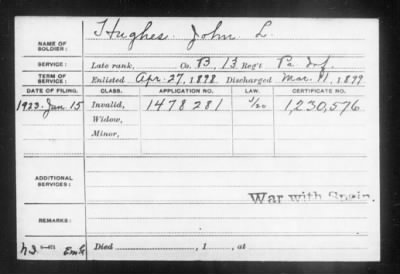 NAME OF SOLDIER: Hughes, John L.
SERVICE: Late rank, Co. B, 13 Reg't Pa. Inf.
TERM OF SERVICE: Enlisted Apr. 27, 1898 Discharged Mar. 11, 1899
DATE OF FILING. CLASS. APPLICATION NO. LAW. CERTIFICATE NO.
1923. Jan. 15 Invalid, 1478281 1,230,576
Widow,
Minor,
ADDITIONAL SERVICES:
War with Spain.
REMARKS:
Died , 1 , at